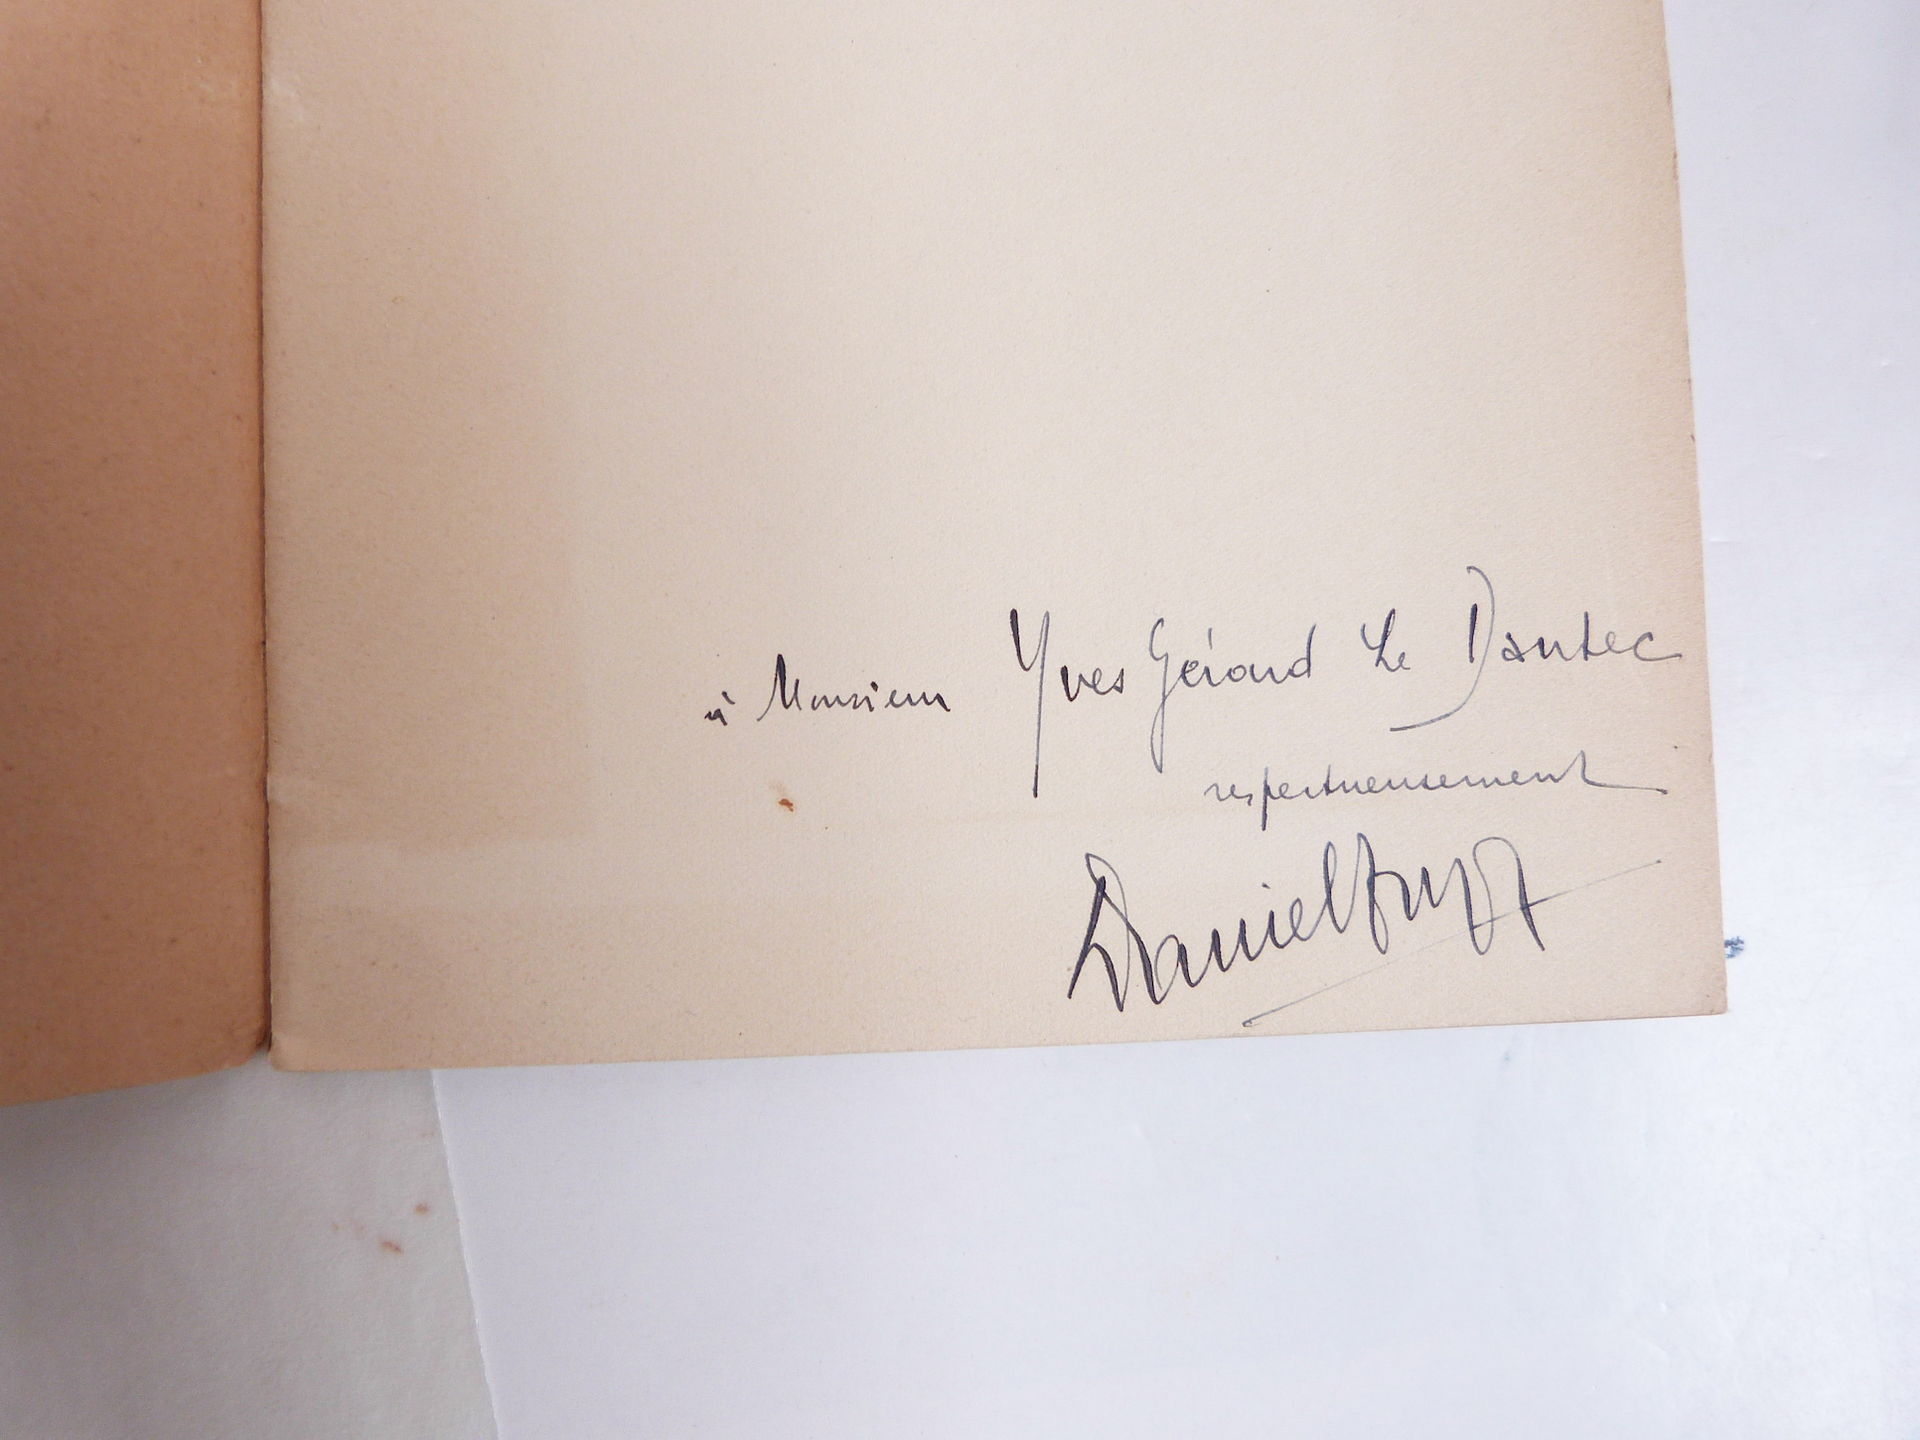 à Monsieur Yves Gérard Le Dantec
respectueusement
Daniel